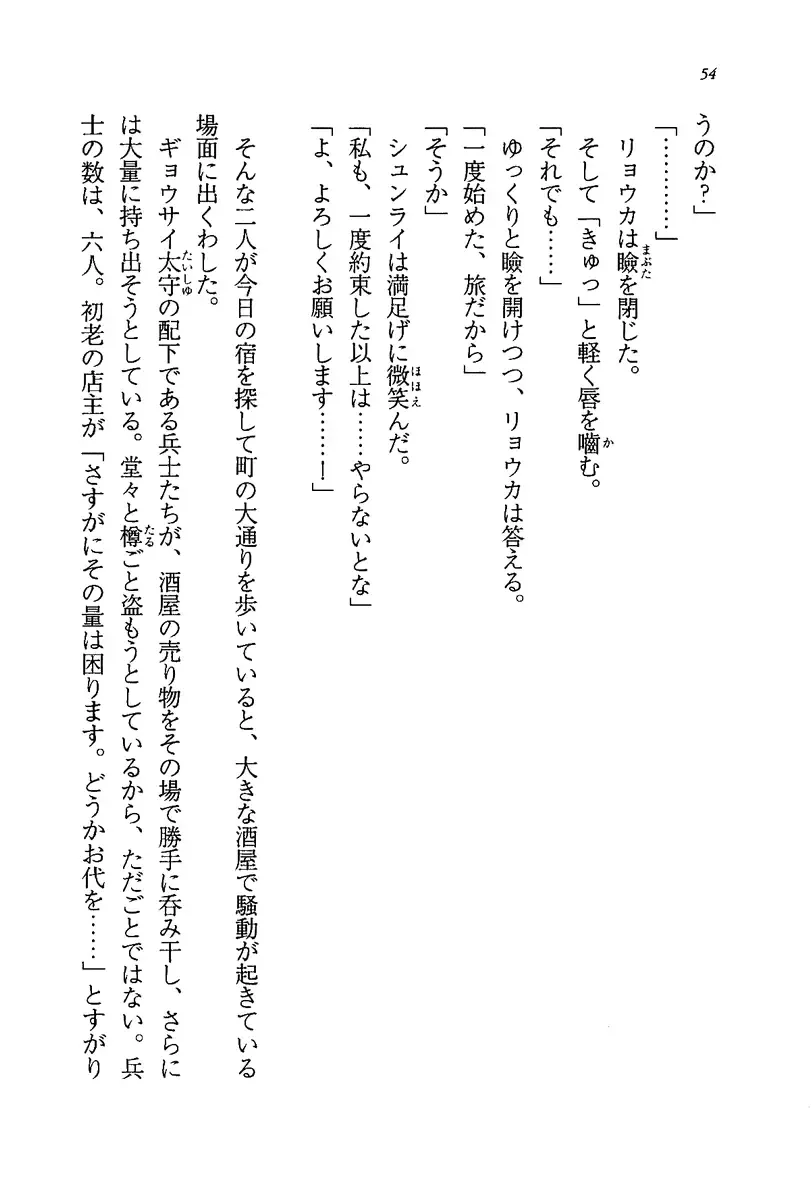 54
うのか？」
「…………」
　リョウカは瞼を閉じた。
　そして「きゅっ」と軽く唇を嚙む。
「それでも……」
　ゆっくりと瞼を開けつつ、リョウカは答える。
「一度始めた、旅だから」
「そうか」
　シュンライは満足げに微笑んだ。
「私も、一度約束した以上は……やらないとな」
「よ、よろしくお願いします……！」
　そんな二人が今日の宿を探して町の大通りを歩いていると、大きな酒屋で騒動が起きている
場面に出くわした。
　ギョウサイ太守の配下である兵士たちが、酒屋の売り物をその場で勝手に呑み干し、さらに
は大量に持ち出そうとしている。堂々と樽ごと盗もうとしているから、ただごとではない。兵
士の数は、六人。初老の店主が「さすがにその量は困ります。どうかお代を……」とすがり